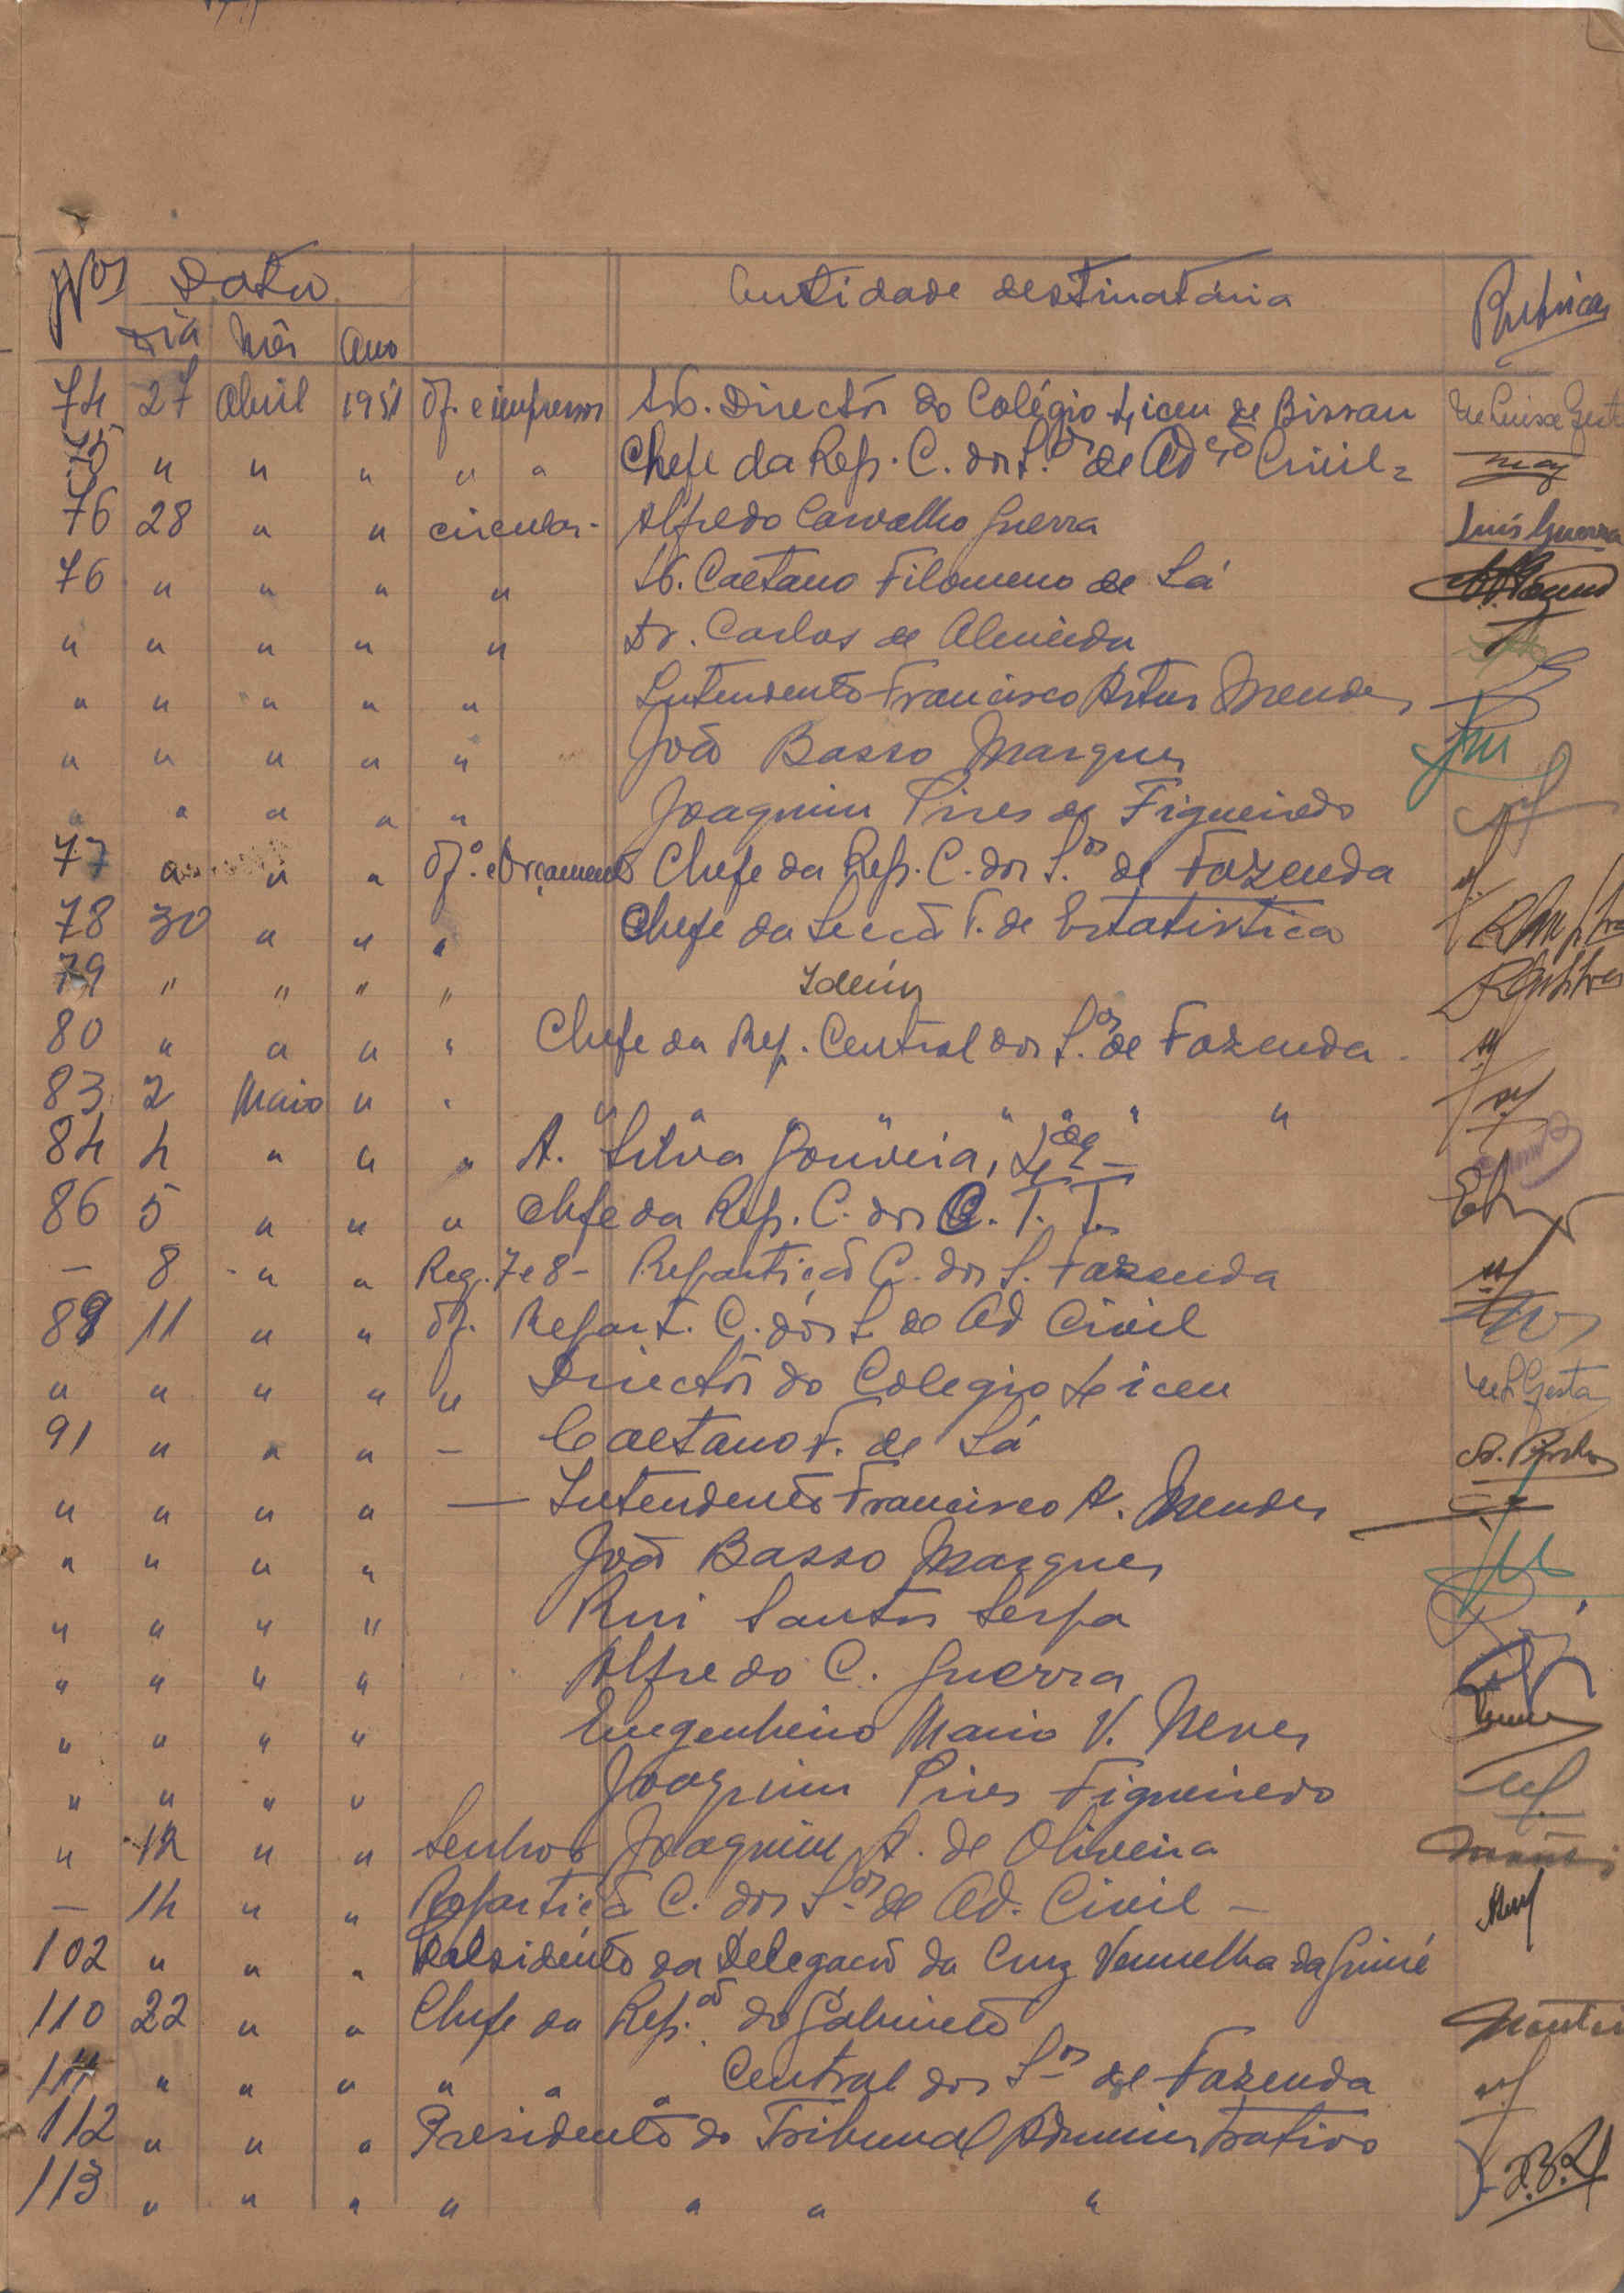 Nos Data Entidade destinatária Rubricas
Dia Mês Ano
74 27 Abril 1951 Of. e impressos Sr. Director do Colégio Liceu de Bissau
75 " " " " " Chefe da Rep. C. dos S.os de Ad Civil
76 28 " " circular - Alfredo Carvalho Guerra Luís Guerra
76 " " " " Sr. Caetano Filomeno de Sá
" " " " " Dr. Carlos de Almeida
" " " " " Intendente Francisco Artur Mendes
" " " " " João Basso Marques
" " " " " Joaquim Pires de Figueiredo
77 " " " Of.º e Orçamento Chefe da Rep. C. dos S.os de Fazenda
78 30 " " " Chefe da Secção T. de Estatistica
79 " " " " Idem
80 " " " " Chefe da Rep. Central dos S.os de Fazenda.
83 2 Maio " " " " " " " " " "
84 4 " " " A. Silva Gouveia, L.da
86 5 " " " Chefe da Rep. C. dos C. T. T.
— 8 - " " Req. 7 e 8 - Repartição C. dos S. Fazenda
89 11 " " Of. Repart. C. dos S. de Ad Civil
" " " " " Director do Colegio Liceu
91 " " " — Caetano F. de Sá
" " " " — Intendente Francisco A. Mendes
" " " " João Basso Marques
" " " " Rui Santos Serpa
" " " " Alfredo C. Guerra
" " " " Engenheiro Mario V. Neves
" " " " Joaquim Pires Figueiredo
" 12 " " Senhor Joaquim A. de Oliveira
— 14 " " Repartição C. dos S.os de Ad. Civil —
102 " " " Presidente da Delegação da Cruz Vermelha da Guiné
110 22 " " Chefe da Rep.ão do Gabinete
111 " " " " " " Central dos S.os de Fazenda
112 " " " Presidente do Tribunal Administrativo
113 " " " " " " "